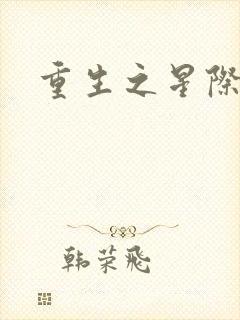 重生之星際
韩荣飛